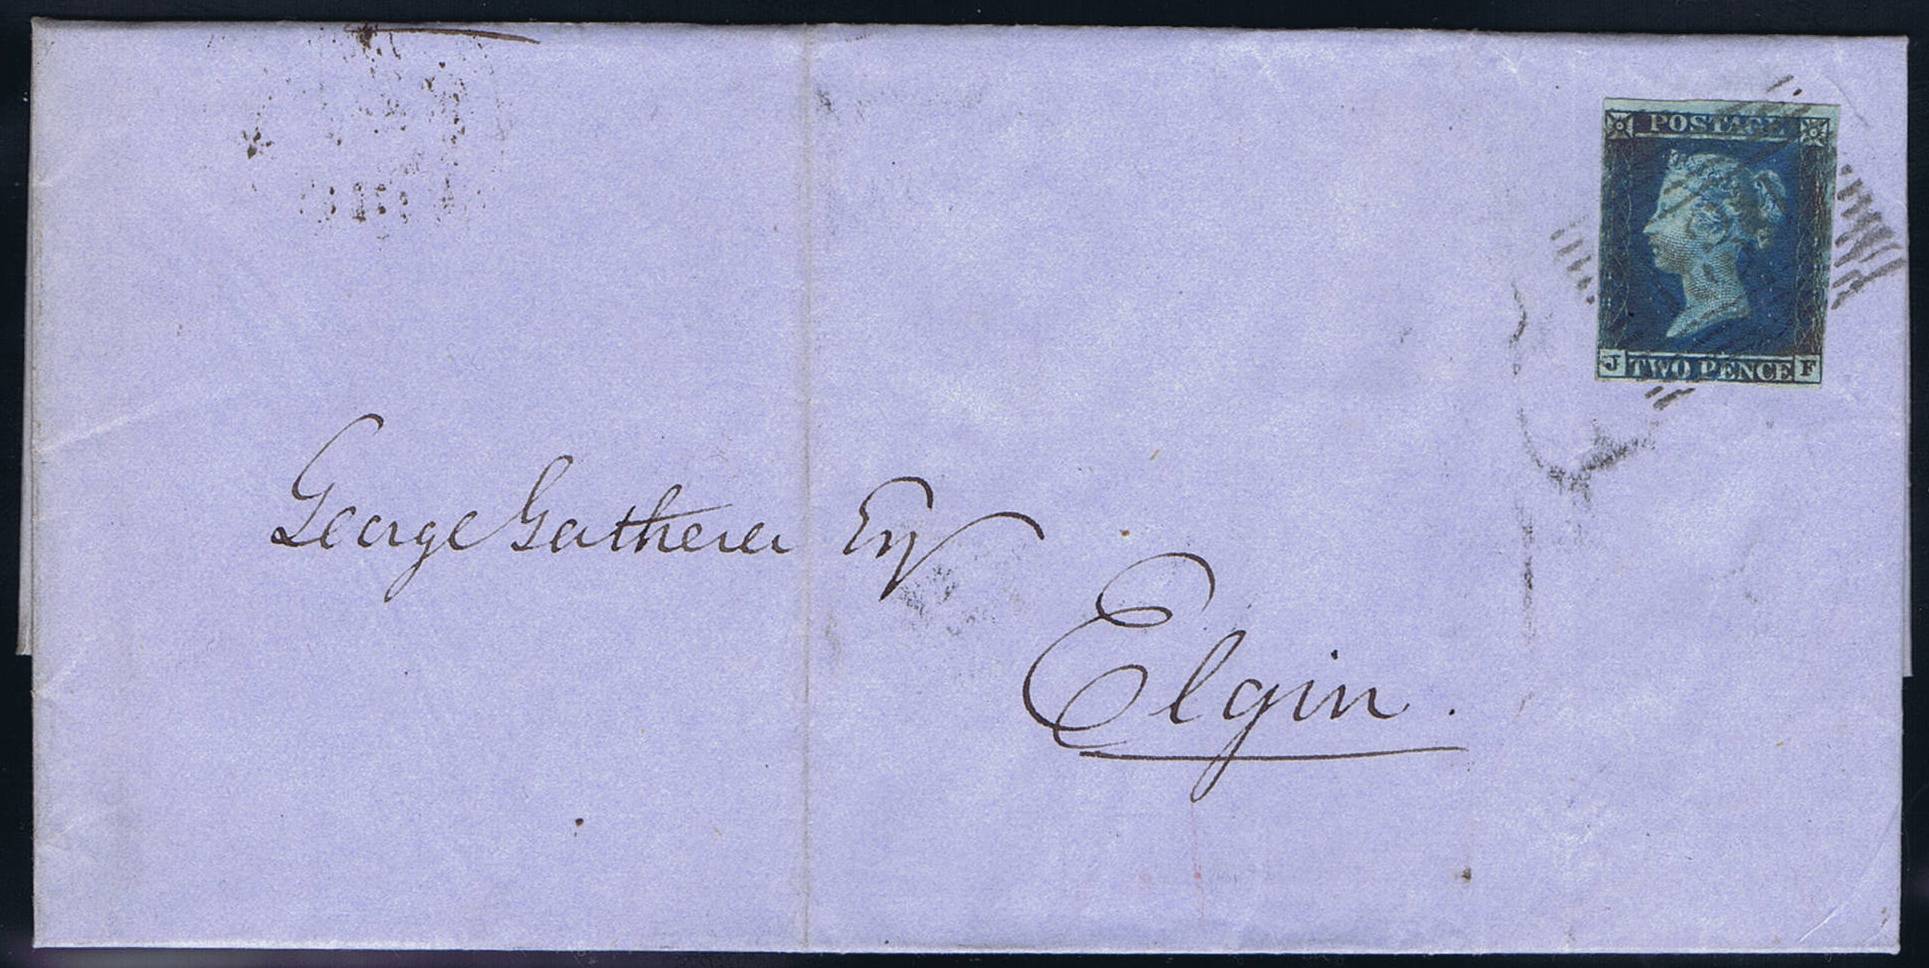 POSTAGE
J TWO PENCE F
George Gatherer Esq
Elgin.